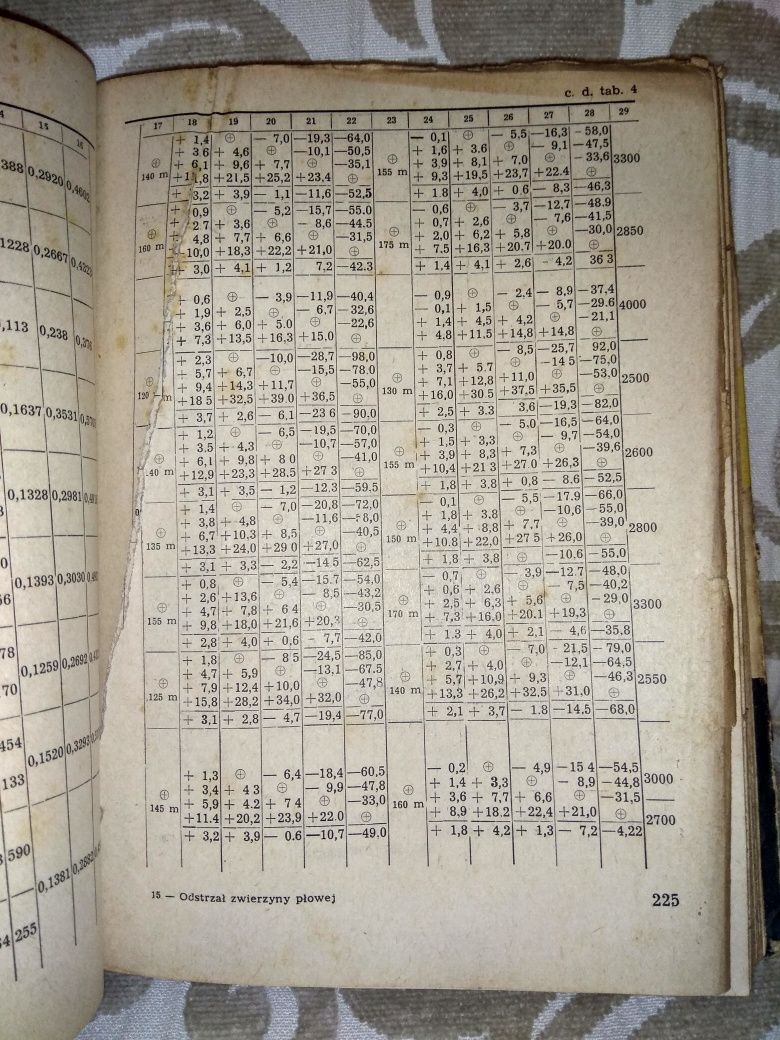 c. d. tab. 4
17 18 19 20 21 22 23 24 25 26 27 28 29
+ 1,4 ⊕ — 7,0 —19,3 —64,0 — 0,1 ⊕ — 5,5 —16,3 - 58,0
+ 3 6 + 4,6 ⊕ —10,1 —50,5 + 1,6 + 3.6 ⊕ — 9,1 —47,5
140 m + 6,1 + 9,6 + 7,7 ⊕ —35,1 155 m + 3,9 + 8,1 + 7,0 ⊕ —33,6 3300
1,8 +21,5 +25,2 +23,4 ⊕ + 9,3 +19,5 +23,7 +22.4 ⊕
+ 3,2 + 3,9 — 1,1 —11,6 —52,5 + 1.8 + 4,0 + 0 6 — 8,3 —46,3
0,9 ⊕ — 5,2 —15,7 —55.0 — 0,6 ⊕ — 3,7 —12,7 —48.9
2 7 + 3,6 ⊕ — 8,6 —44.5 + 0,7 + 2,6 ⊕ — 7,6 —41,5
160 m 4,8 + 7,7 + 6,6 ⊕ —31,5 175 m + 2,0 + 6,2 + 5,8 ⊕ —30,0 2850
10,0 +18,3 +22,2 +21,0 ⊕ + 7.5 +16,3 +20.7 +20.0 ⊕
+ 3,0 + 4,1 + 1,2 7,2 —42.3 + 1,4 + 4,1 + 2,6 - 4,2 36 3
+ 0,6 ⊕ — 3,9 —11,9 —40,4 — 0,9 ⊕ — 2,4 — 8,9 —37,4
+ 1,9 + 2,5 ⊕ — 6,7 —32,6 — 0,1 + 1,5 ⊕ — 5,7 —29.6 4000
+ 3,6 + 6,0 + 5.0 ⊕ —22,6 + 1,4 + 4,5 + 4,2 ⊕ —21,1
+ 7,3 +13,5 +16,3 +15.0 ⊕ + 4,8 +11.5 +14,8 +14,8 ⊕
+ 2,3 ⊕ —10,0 —28,7 —98,0 + 0,8 ⊕ — 8,5 —25,7 92,0
+ 5,7 + 6,7 ⊕ —15,5 —78.0 + 3,7 + 5.7 ⊕ —14 5 —75,0
120 m + 9,4 +14,3 +11,7 ⊕ —55,0 130 m + 7,1 +12,8 +11,0 ⊕ —53,0 2500
+18 5 +32,5 +39.0 +36,5 ⊕ +16,0 +30 5 +37,5 +35,5 ⊕
+ 3,7 + 2,6 — 6,1 —23 6 —90.0 + 2,5 + 3.3 3,6 —19,3 —82,0
+ 1,2 ⊕ — 6,5 —19,5 —70,0 — 0,3 ⊕ — 5.0 —16,5 —64,0
+ 3,5 4,3 ⊕ —10,7 —57,0 + 1,5 + 3,3 ⊕ — 9,7 —54,0
40 m + 6,1 + 9,8 + 8 0 ⊕ —41,0 155 m + 3,9 + 8,3 + 7,3 ⊕ —39,6 2600
+12,9 +23,3 +28.5 +27 3 ⊕ +10,4 +21 3 +27.0 +26,3 ⊕
+ 3,1 + 3,5 — 1,2 —12.3 —59.5 + 1,8 + 3.8 + 0,8 — 8.6 —52,5
+ 1,4 ⊕ — 7,0 —20,8 —72,0 — 0,1 ⊕ — 5,5 —17.9 —66,0
+ 3,8 + 4,8 ⊕ —11,6 + 1,8 + 3.8 ⊕ —10,6 —55,0
135 m + 6,7 +10,3 + 8,5 ⊕ —40,5 150 m + 4,4 + 8,8 + 7,7 ⊕ —39,0 2800
+13,3 +24,0 +29 0 +27,0 ⊕ +10.8 +22,0 +27 5 +26,0 ⊕
+ 3,1 + 3,3 — 2,2 —14 5 —62,5 + 1,8 + 3,8 ⊕ —10.6 —55,0
+ 0,8 ⊕ — 5,4 —15.7 —54,0 — 0,7 ⊕ — 3,9 —12.7 —48,0
+ 2,6 +13,6 ⊕ — 8,5 —43,2 + 0,6 + 2,6 ⊕ 7,5 —40,2
155 m + 4,7 + 7,8 + 6 4 ⊕ —30,5 170 m + 2,5 + 6,3 + 5,6 ⊕ —29,0 3300
+ 9,8 +18,0 +21,6 +20,3 ⊕ + 7,3 +16.0 +20.1 +19,3 ⊕
+ 2,8 + 4,0 + 0,6 - 7,7 —42,0 + 1.3 + 4,0 + 2,1 — 4,6 —35.8
+ 1,8 ⊕ — 8 5 —24,5 —85,0 + 0,3 ⊕ — 7,0 - 21,5 — 79,0
+ 4,7 + 5,9 ⊕ —13,1 —67.5 + 2,7 + 4,0 ⊕ —12,1 —64,5
125 m + 7,9 +12,4 +10,0 ⊕ —47,8 140 m + 5,7 +10,9 + 9,3 ⊕ —46,3 2550
+15,8 +28,2 +34,0 +32,0 ⊕ +13,3 +26,2 +32,5 +31,0 ⊕
+ 3,1 + 2,8 — 4,7 —19,4 —77,0 + 2,1 + 3,7 — 1.8 —14,5 —68,0
+ 1,3 ⊕ — 6,4 —18,4 —60,5 — 0,2 ⊕ — 4,9 —15 4 —54,5
+ 3,4 + 4 3 ⊕ — 9,9 —47,8 + 1,4 + 3,3 ⊕ — 8,9 —44,8 3000
145 m + 5,9 + 4.2 + 7 4 ⊕ —33,0 160 m + 3,6 + 7,7 + 6,6 ⊕ —31,5
+11.4 +20,2 +23,9 +22.0 ⊕ + 8,9 +18.2 +22,4 +21,0 ⊕ 2700
+ 3,2 + 3,9 — 0.6 —10,7 —49.0 + 1,8 + 4,2 + 1,3 — 7,2 —4,22
15 — Odstrzał zwierzyny płowej
225
15 16
388 0,2920 0,4602
1228 0,2667
0,113 0,238
0,1637 0,3531
0,1328 0,2981
0,1393 0,3030
0,1259 0,2692
70
454 0,1520 0,3293
133
590
0,1381 0,2882
255